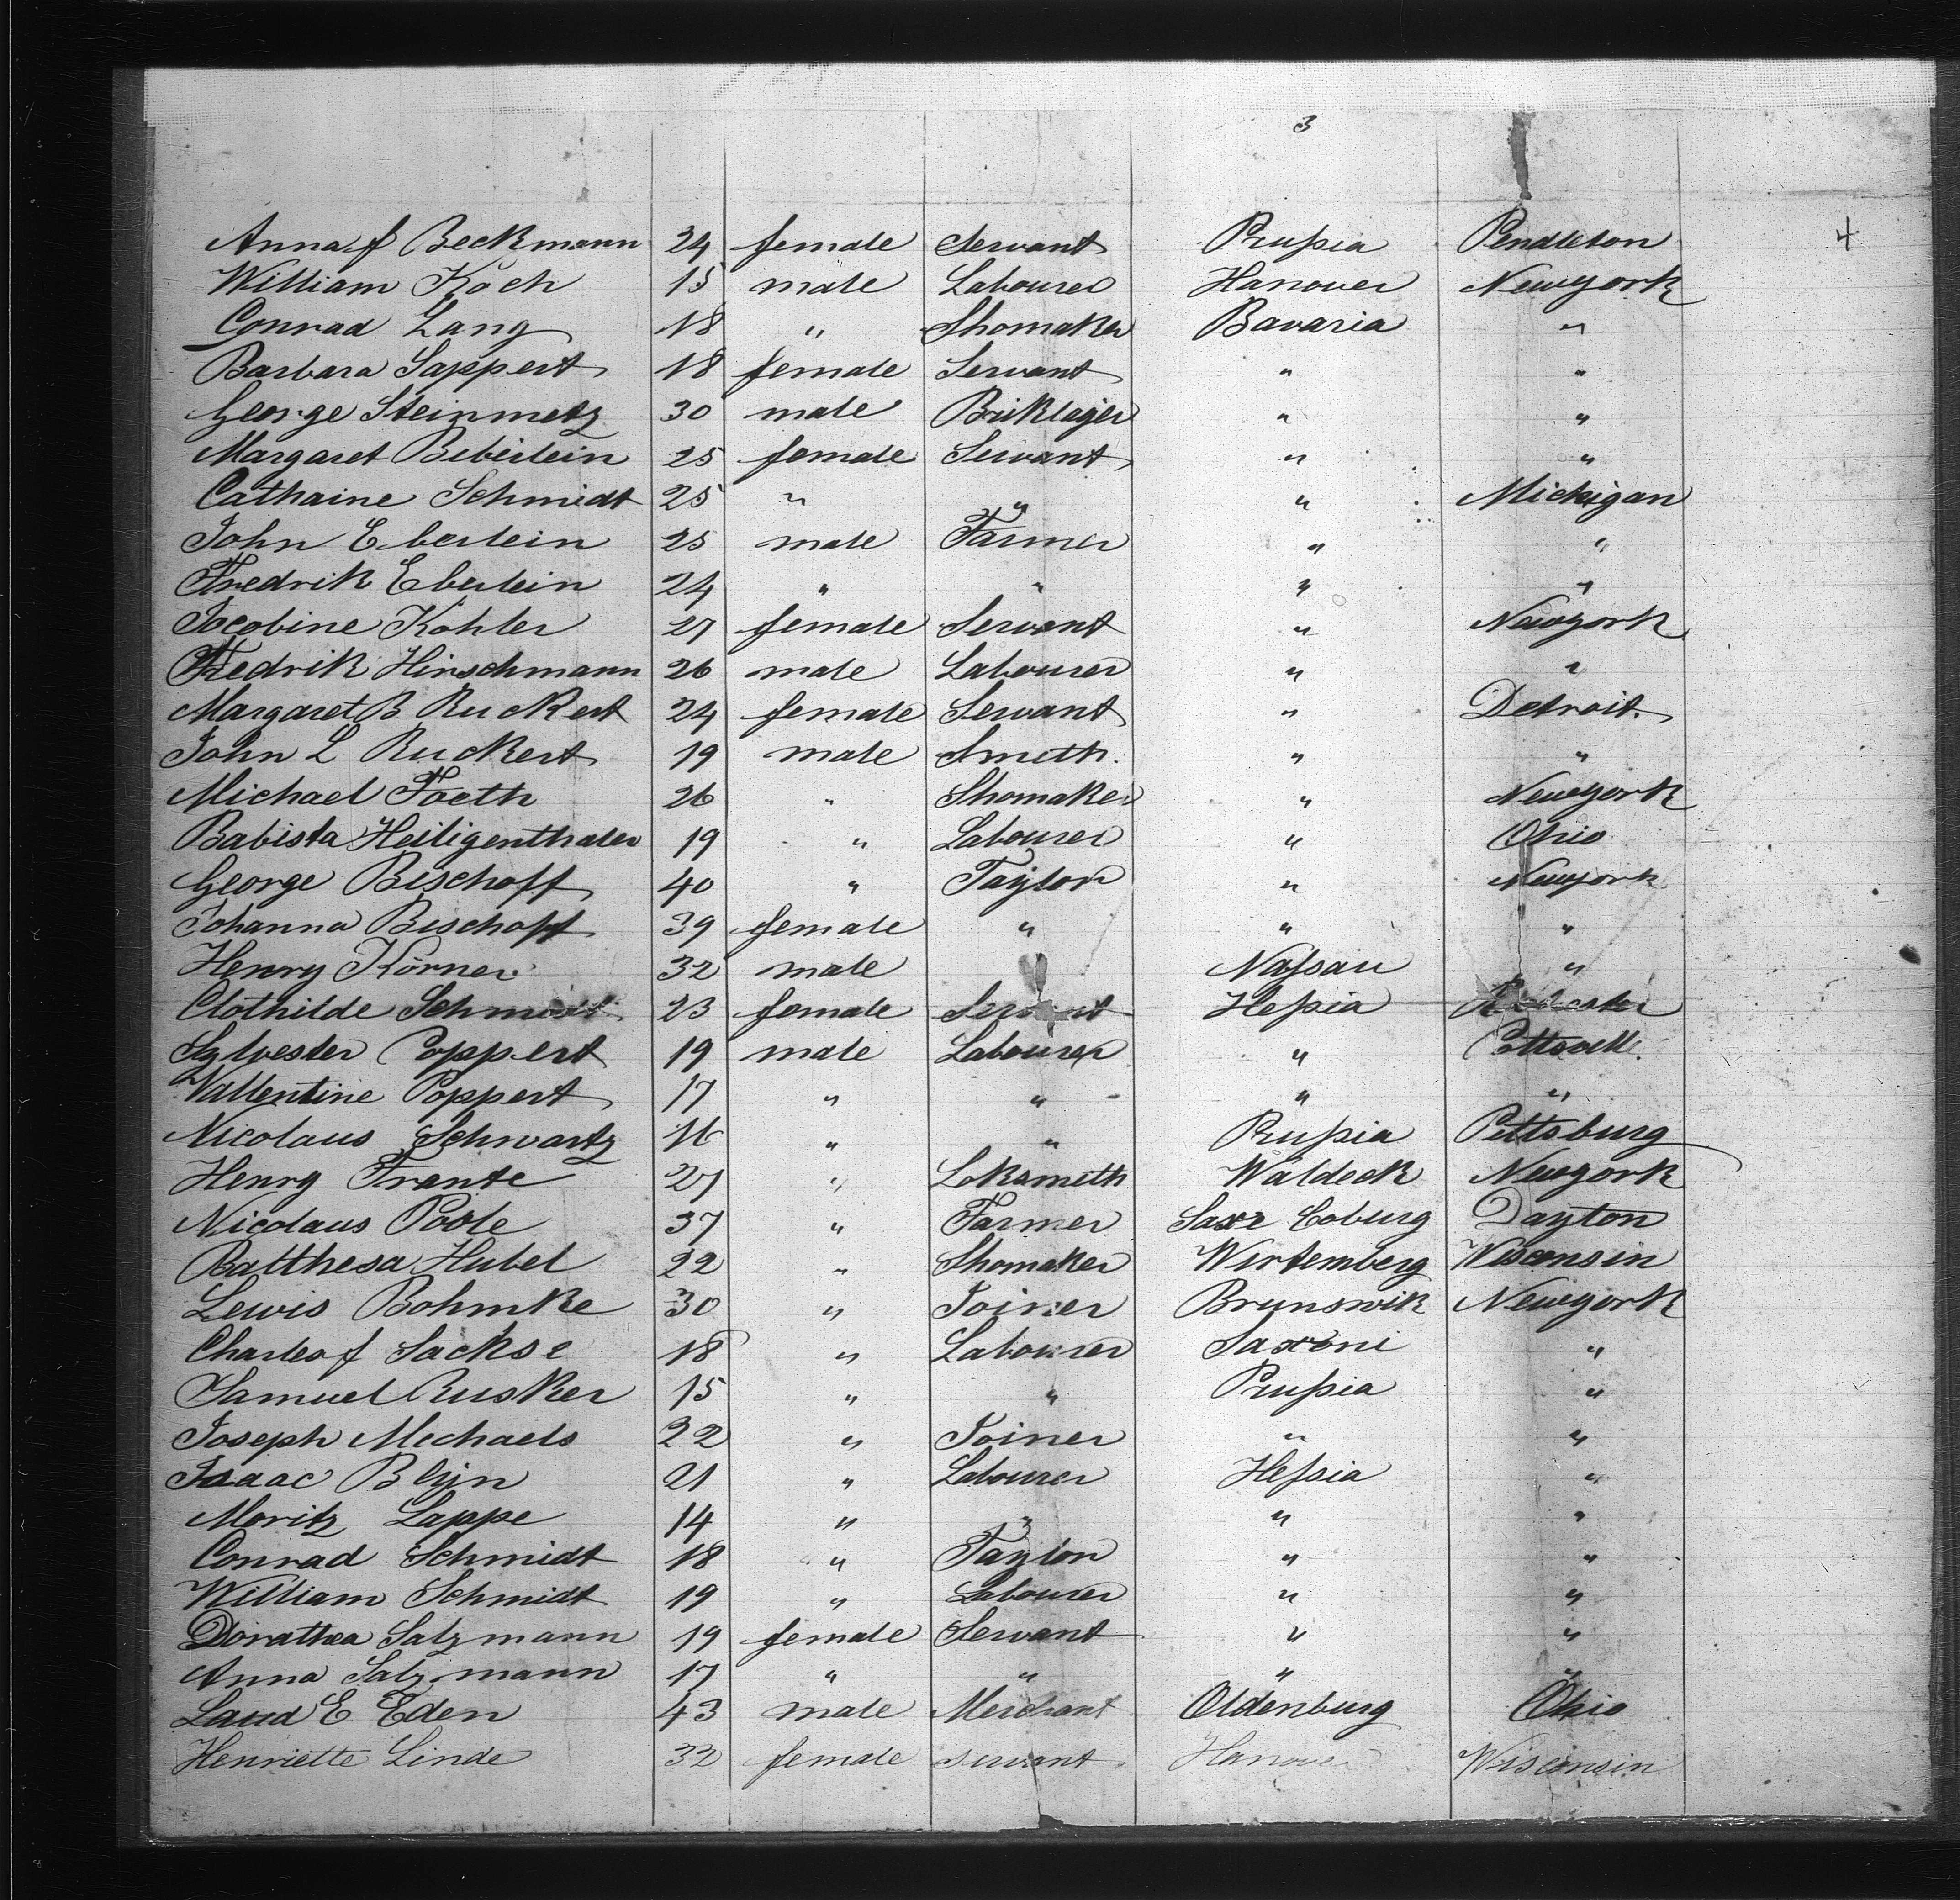 3
Anna f Beckmann 24 female Servant Prussia Pendleton 4
William Koch 15 male Labourer Hanover Newyork
Conrad Lang 18 " Shomaker Bavaria "
Barbara Sappert 18 female Servant " "
George Steinmetz 30 male Briklayer " "
Margaret Beberlein 25 female Servant " "
Cathaine Schmidt 25 " " " Michigan
John Eberlein 25 male Farmer " "
Fredrik Eberlein 24 " " " "
Jacobine Köhler 27 female Servant " Newyork
Fredrik Hirschmann 26 male Labourer " "
Margaret B Ruckert 24 female Servant " Detroit.
John L Ruckert 19 male Smeth. " "
Michael Foeth 26 " Shomaker " Newyork
Babista Heiligenthaler 19 " Labourer " Ohio
George Bischoff 40 " Taylor " Newyork
Johanna Bischoff 39 female " " "
Henry Körner 32 male Nassau "
Clothilde Schmidt 23 female Servant Hessia
Sylvester Poppert 19 male Labourer "
Vallentine Poppert 17 " " " "
Nicolaus Schwartz 16 " " Prussia Pittsburg
Henry Frante 27 " Loksmeth Waldeck Newyork
Nicolaus Poole 37 " Farmer Saxe Coburg Dayton
Balthesa Hubel 22 " Shomaker Wirtemberg Wisconsin
Lewis Bohmke 30 " Joiner Brunswik Newyork
Charles f Sackse 18 " Labourer Saxoni "
Samuel Rusker 15 " " Prussia "
Joseph Michaels 22 " Joiner " "
Isaac Blyn 21 " Labourer Hessia "
Moritz Lappe 14 " " " "
Conrad Schmidt 18 " Taylor " "
William Schmidt 19 " Labourer " "
Dorathea Salzmann 19 female Servant " "
Anna Salzmann 17 " " " "
E Eden 43 male Merchant Oldenburg Ohio
Henriette Linde 32 female servant Hanover Wisconsin